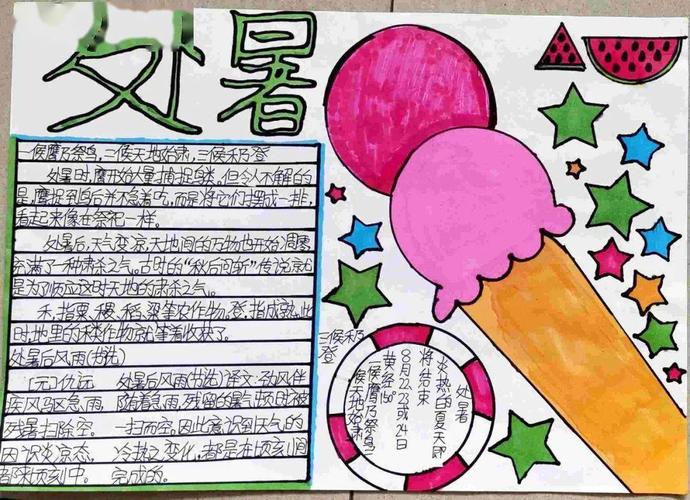 处暑
一候鹰乃祭鸟,三候天地始肃,三候禾乃登
处暑时,鹰开始大量捕捉鸟类。但令人不解的
是,鹰捉到鸟后并不急着吃,而是将它们摆成一排,
看起来像在祭祀一样。
处暑后,天气变凉,天地间的万物也开始凋零,
充满了一种肃杀之气。古时的“秋后问斩”传说就
是为了顺应这时天地的肃杀之气。
禾,指黍、稷、稻、粱等农作物,登,指成熟。此
时,地里的秋作物就等着收获了。
处暑后风雨(书选)
(元)仇远 处暑后风雨(书选)译文:劲风伴
疾风驱急雨, 随着急雨,残留的暑气顿时被
残暑扫除空。 一扫而空,因此意识到天气的
因识炎凉态, 冷热之变化,都是在顷刻间
都来顷刻中。 完成的。
三候禾乃
登
处暑
炎热的夏天即
将结束
8月22、23或24日
黄经150°
一候鹰乃祭鸟
二候天地始肃